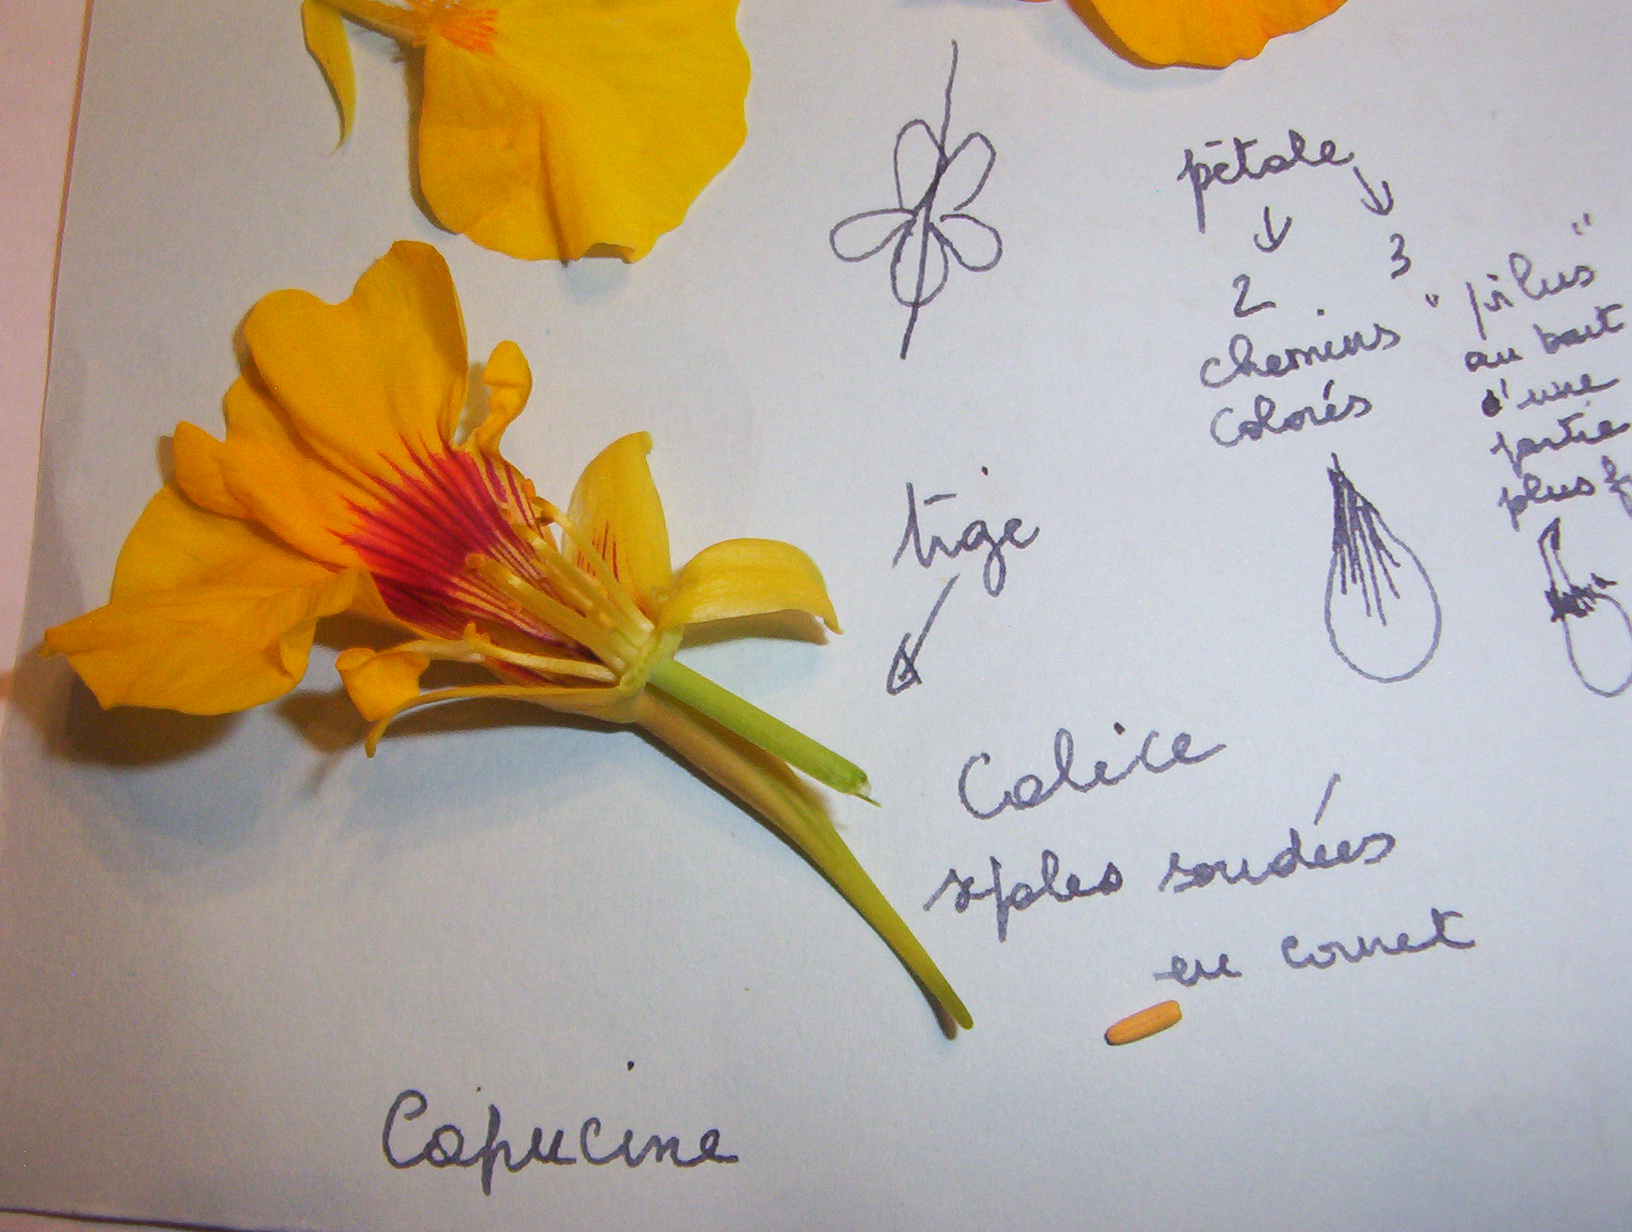 pétale
2
chemins
colorés
3
"pilus"
au bout
d'une
partie
plus
tige
Calice
sépales soudées
en cornet
Capucine